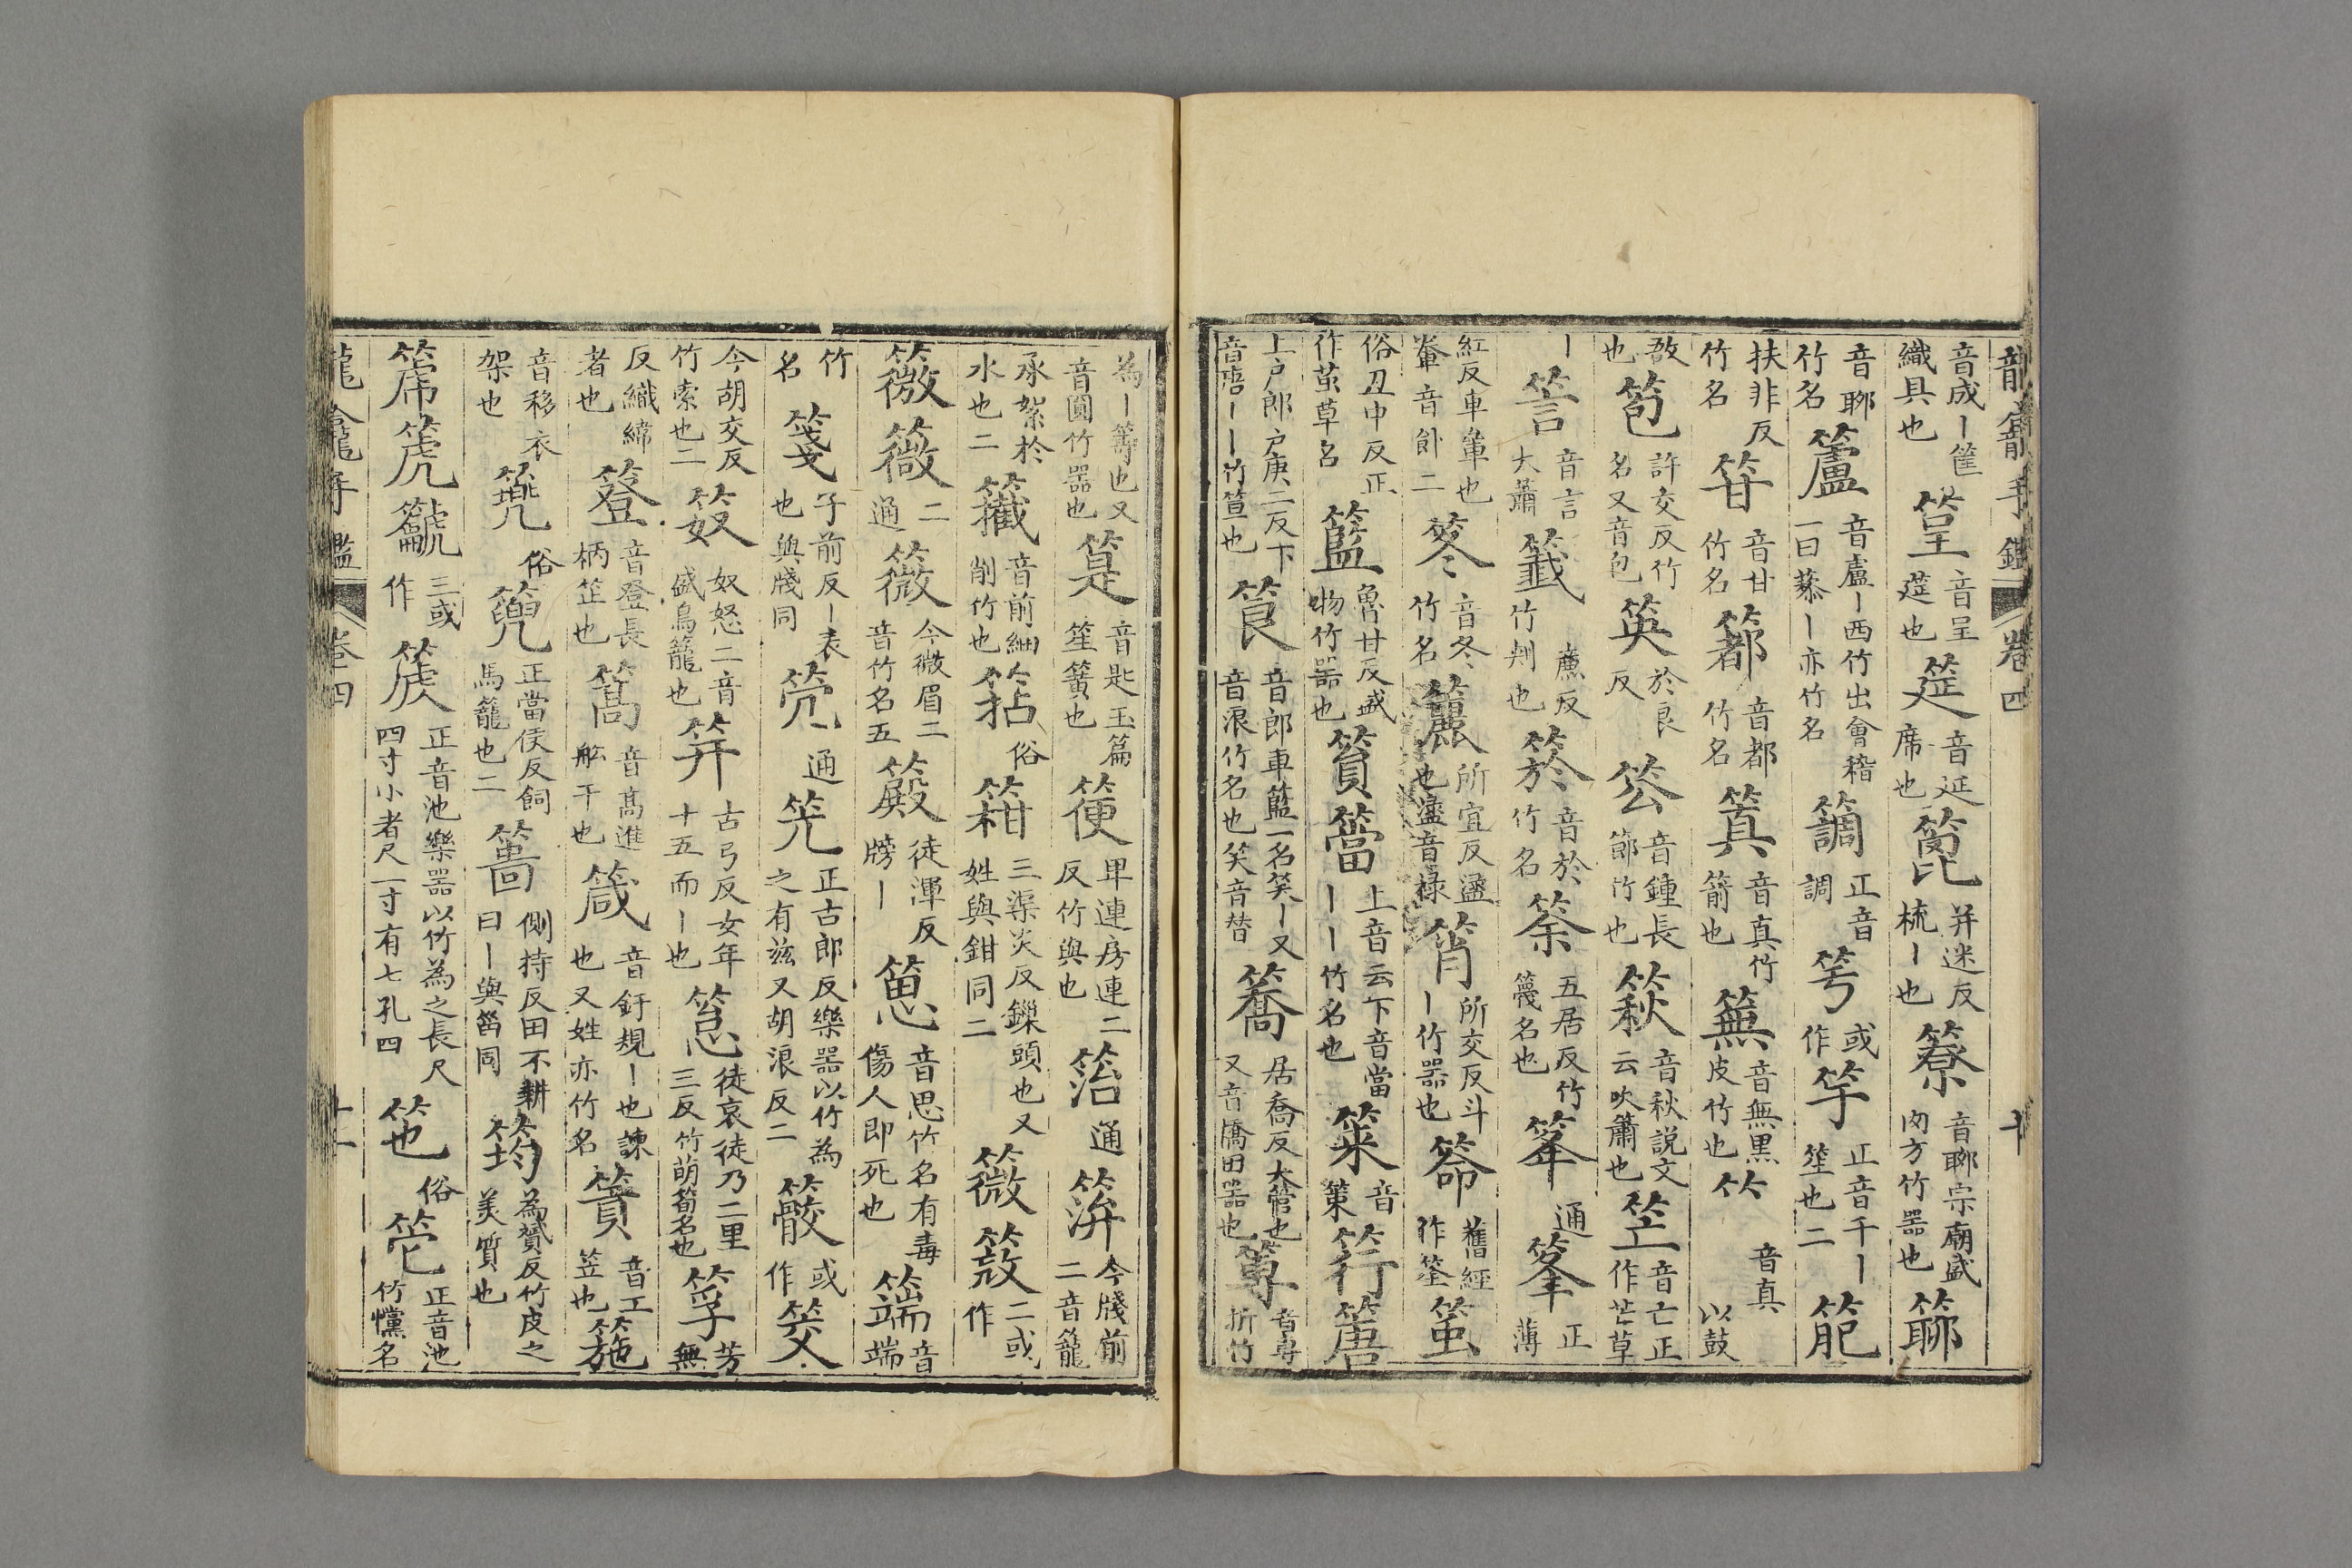 龍龕手鑑 卷四 十
音成丨筐織具也 筳 音呈筳也 筵 音延席也 篦 并迷反梳丨也 簝 音聊宗廟盛肉方竹器也 䉼
音聊竹名 籚 音盧丨西竹出會稽一曰蓧丨亦竹名 䈾 正音調 䇢 或作 竽 正音千丨笙也二 䈈
扶非反竹名 䇞 音甘竹名 䈦 音都竹名 䈯 音真竹箭也 䉑 音無黒皮竹也 竹 音真以鼓
敔也 笣 許交反竹名又音包 䇦 於良反 䇗 音鍾長節竹也 萩 音秋説文云吹簫也 䇃 音亡正作芒草
丨 䇾 音言大蕭 籤 廉反竹判也 箊 音於竹名 筡 五居反竹篾名也 䈊 通 篗 正薄
紅反車軬也軬音飰二 笗 音冬竹名 簏 所宜反盪也盪音祿 筲 所交反斗丨竹器也 䈑 舊經作筌 䇝
俗丑中反正作茧草名 籃 魯甘反盛物竹器也 篔簹 上音云下音當丨丨竹名也 策 音策 筕篖
上户郎户庚二反下音唐丨丨竹笪也 筤 音郎車籃一名笑丨又音浪竹名也笑音替 簥 居喬反大管也又音橋田器也 䈠 音專折竹
為丨籌也又音圓竹器也 筪 音匙玉篇笙簧也 箯 卑連房連二反竹輿也 䇭 通 䈂 今牋前二音籠
承絮於水也二 䉶 音前細削竹也 䇡 俗 箝 三渠炎反鑷頭也又姓與鉗同二 䉠 䈘 二或作
薇 薇 二通 薇 今微眉二音竹名五 䈰 徒渾反牓丨 䈡 音思竹名有毒傷人即死也 䈤 音端
竹名 箋 子前反丨表也與牋同 䇨 通 筦 正古郎反樂器以竹為之有兹又胡浪反二 䈫 或作 筊
今胡交反竹索也二 笯 奴怒二音盛鳥籠也 笄 古弓反女年十五而丨也 䈚 徒哀徒乃二反竹萌筍名也三 筟 芳無
反織緯者也 簦 音登長柄笠也 篙 音髙進舩干也 箴 音針規丨也諫也又姓亦竹名 簣 音工笠也 箷
音移衣架也 䈪 俗 篼 正當侯反飼馬籠也二 䈳 側持反田不耕曰丨與菑同 筠 為贇反竹皮之美質也
䈕 箎 龥 三或作 篪 正音池樂器以竹為之長尺四寸小者尺一寸有七孔四 䇣 俗 笹 正音池竹懺名
龍龕手鑑 卷四 十一